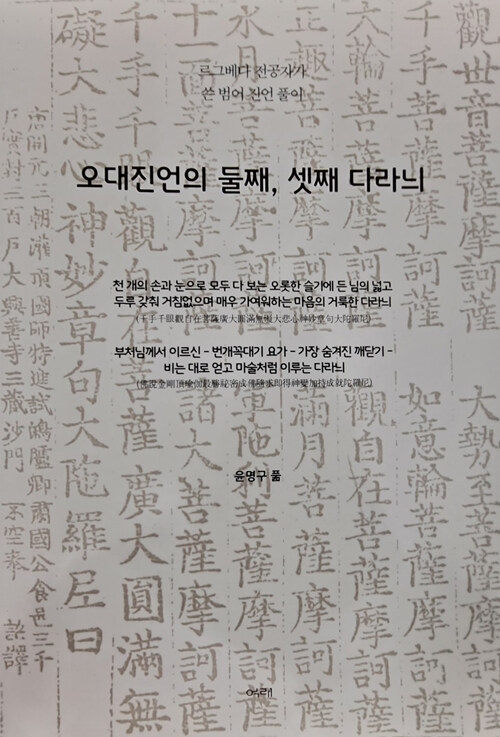 르그베다 전공자가
쓴 범어 진언 풀이
오대진언의 둘째, 셋째 다라늬
천 개의 손과 눈으로 모두 다 보는 오롯한 슬기에 든 님의 넓고
두루 갖춰 거침없으며 매우 가여워하는 마음의 거룩한 다라늬
(千手千眼觀自在菩薩廣大圓滿無礙大悲心神妙章句大陀羅尼)
부처님께서 이르신 - 번개꼭대기 요가 - 가장 숨겨진 깨닫기 -
비는 대로 얻고 마술처럼 이루는 다라늬
(佛說金剛頂瑜伽最勝秘密成佛隨求即得神變加持成就陀羅尼)
윤명구 풂
여래
觀世音菩薩摩訶薩
大勢至菩薩摩訶薩
千手菩薩摩訶薩
如意輪菩薩摩訶薩
大輪菩薩摩訶薩
觀自在菩薩摩訶薩
正趣菩薩摩訶薩
滿月菩薩摩訶薩
水月菩薩摩訶薩
軍陁利菩薩摩訶薩
十一面菩薩摩訶薩
諸大菩薩摩訶薩
千手千眼觀自在菩薩廣大圓滿無
礙大悲心神妙章句大陁羅尼曰
唐開元三朝灌頂國師特進試鴻臚卿肅國公食邑三千
戶實封三百戶大興善寺三藏沙門 不空奉 詔譯